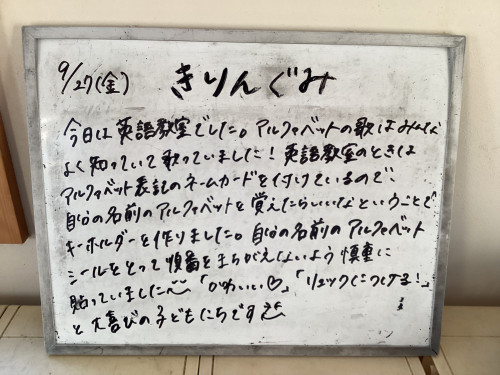 9/27(金) きりんぐみ
今日は英語教室でした。アルファベットの歌はみんな
よく知っていて歌っていました！英語教室のときは
アルファベット表記のネームカードを付けているので、
自分の名前のアルファベットを覚えたらいいなということで
キーホルダーを作りました。自分の名前のアルファベット
シールをとって順番をまちがえないよう慎重に
貼っていました 「かわいい♡」「リュックにつける！」
と大喜びの子どもたちです